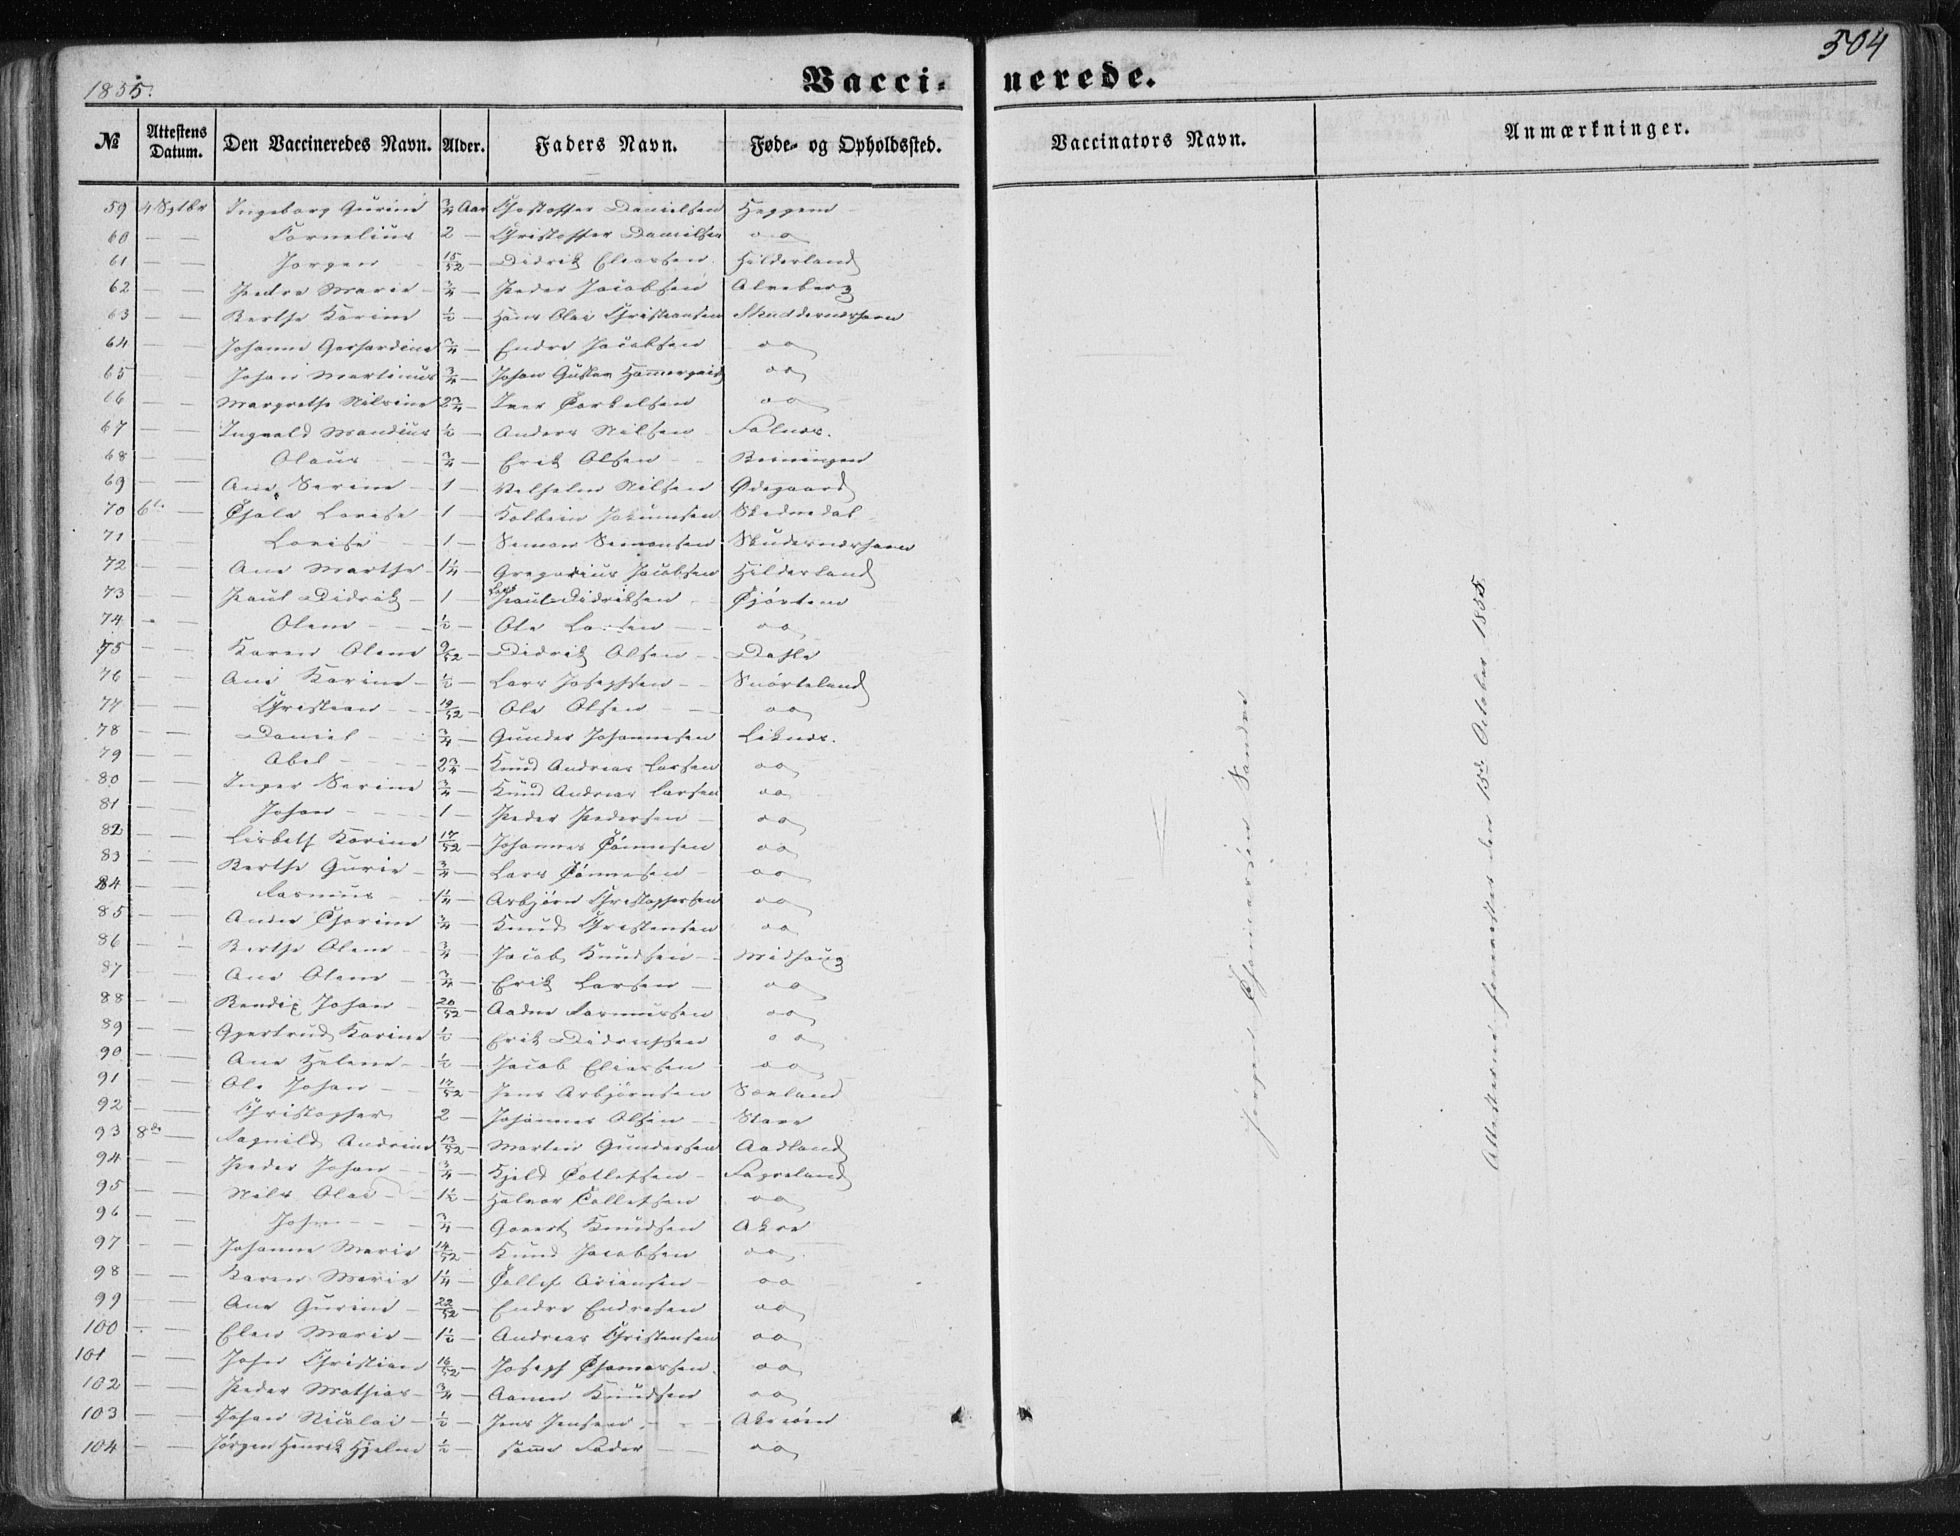 504
1855.
Vaccinerede.
№ Attestens Datum. Den Vaccineredes Navn. Alder. Faders Navn. Føde- og Opholdssted. Vaccinators Navn. Anmærkninger.
59 4 Sptbr Ingeborg Gurine 3/4 Aar Christoffer Danielsen Heggem
60 — — Cornelius 2 — Christoffer Danielsen oo
61 — — Jørgen 15/52 — Didrik Eliassen Hilderland
62 — — Pedra Marie 3/4 — Peder Jacobsen Alveberg
63 — — Berthe Karine 1/2 — Hans Olai Christiansen Skuddesnæshavn
64 — — Johanne Gerhardine 3/4 — Endre Jacobsen oo
65 — — Johan Martinus 3/4 — Johan Gustav oo
66 — — Margrethe Nilsine 2 3/4 — Iver Torkelsen oo
67 — — Ingvald Mandius 1/2 — Anders Nilsen Falnes.
68 — — Olaus 3/4 — Erik Olsen
69 — — Ane Serine 1 — Velhelm Nilsen Ødegaard
70 6te — Thale Lovise 1 — Kolbein Skednedal
71 — — Lovise 1 — Simon Simonsen Skudesnæshavn
72 — — Ane Marthe 1 1/4 — Gregorius Jacobsen Hilderland
73 — — Paul Didrik 1 — Lars Paul Didriksen
74 — — Olene 1/2 — Ole Larsen oo
75 — — Karen Olene 9/52 — Didrik Olsen Dahle
76 — — Ane Karine 1/2 — Lars Josephsen Snørteland
77 — — Christian 19/52 — Ole Olsen oo
78 — — Daniel 3/4 — Gunder Johannesen Liknes.
79 — — Abel 2 3/4 — Knud Andreas Larsen oo
80 — — Inger Serine 3/4 — Knud Andreas Larsen oo
81 — — Johan 1 — Peder Pedersen oo
82 — — Lisbeth Karine 17/52 — Johannes Tønnesen oo
83 — — Berthe Gurie 3/4 — Lars Tønnesen oo
84 — — Rasmus 1 1/4 — Asbjørn Christophersen oo
85 — — Andrea Thorine 3/4 — Knud Christensen oo
86 — — Berthe Olene 3/4 — Jacob Knudsen Midhaug
87 — — Ane Olene 3/4 — Erik Larsen oo
88 — — Bendix Johan 20/52 — Aadne Rasmussen oo
89 — — Gjertrud Karine 1/2 — Erik Didriksen oo
90 — — Ane Helene 1/2 — Jacob Eliassen oo
91 — — Ole Johan 17/52 — Jens Asbjørnsen Sævland
92 — — Christopher 2 — Johannes Olsen Stave
93 8de — Ragnild Andrine 13/52 — Martin Gundersen Aadland
94 — — Peder Johan 3/4 — Kjeld Tollefsen Fagreland
95 — — Nils Olai 1 1/2 — Halvor Tollefsen oo
96 — — John 3/4 — Govert Knudsen Akre
97 — — Johanne Marie 14/52 — Knud Jacobsen oo
98 — — Karen Marie 1 1/4 — Tollef Ariansen oo
99 — — Ane Gurine 22/52 — Endre Endresen oo
100 — — Elen Marie 1 1/2 — Andreas Christensen oo
101 — — John Christian 16/52 — Joseph Thomassen oo
102 — — Peder Mathias 3/4 — Aanen Knudsen oo
103 — — Johan Nicolai 1/2 — Jens Jensen Akreøen
104 — — Jørgen Henrik Hjelm 1/2 — samme Fader oo
Jørgen Thomassen Sandve
Attesterne den 15de October 1855